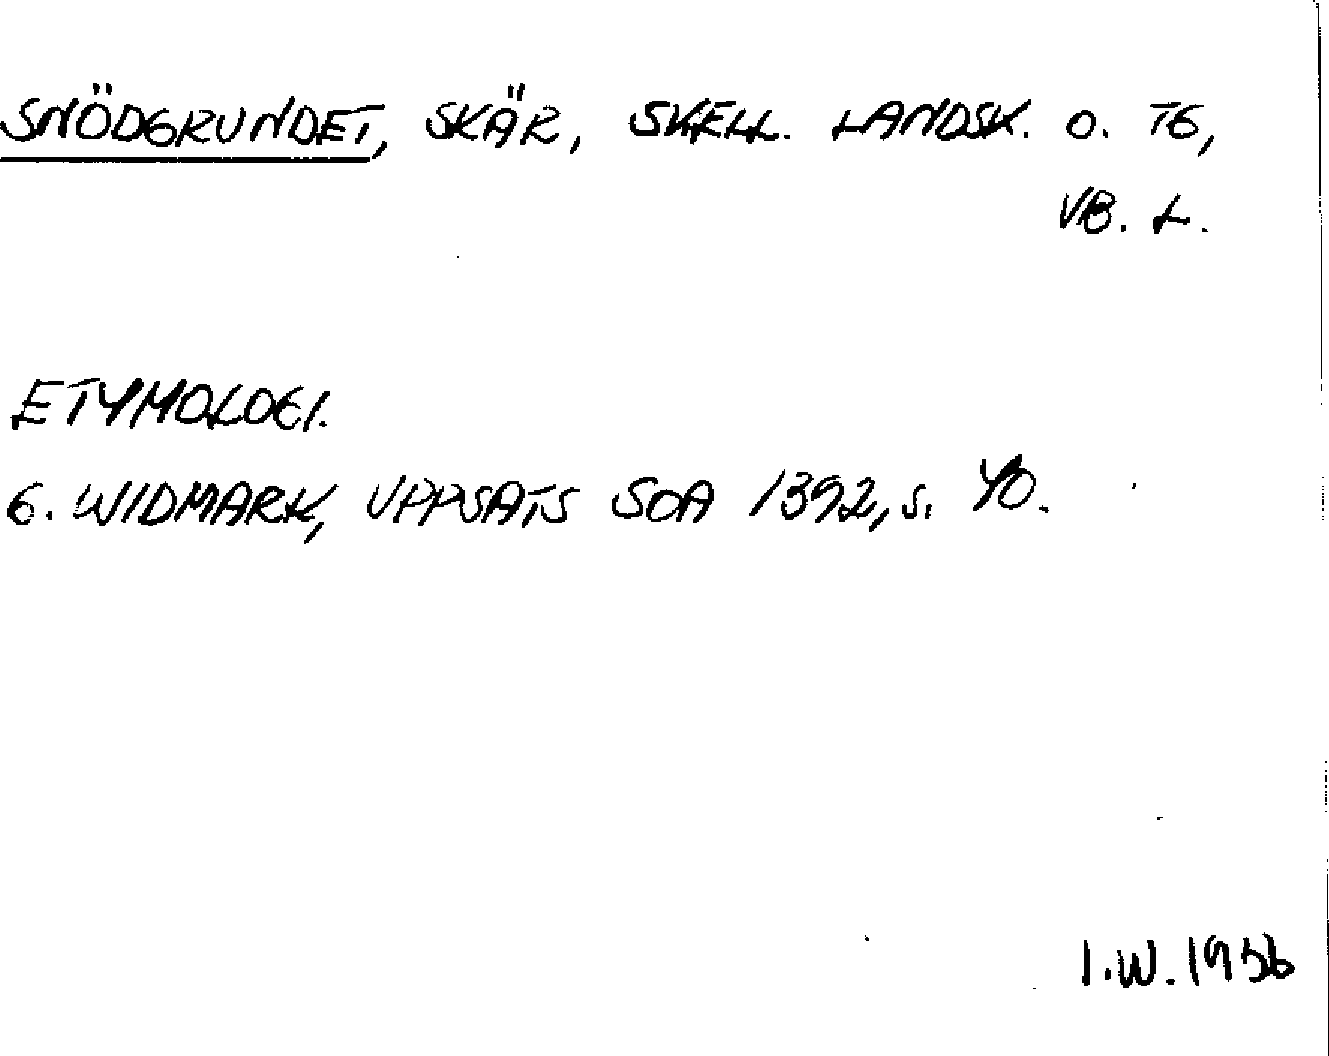 SNÖDGRUNDET, SKÄR, SKELL. LANDSK. O. TG,
VB. L.
ETYMOLOGI.
G. WIDMARK, UPPSATS SOA 1392, S. 40.
I.W. 1956